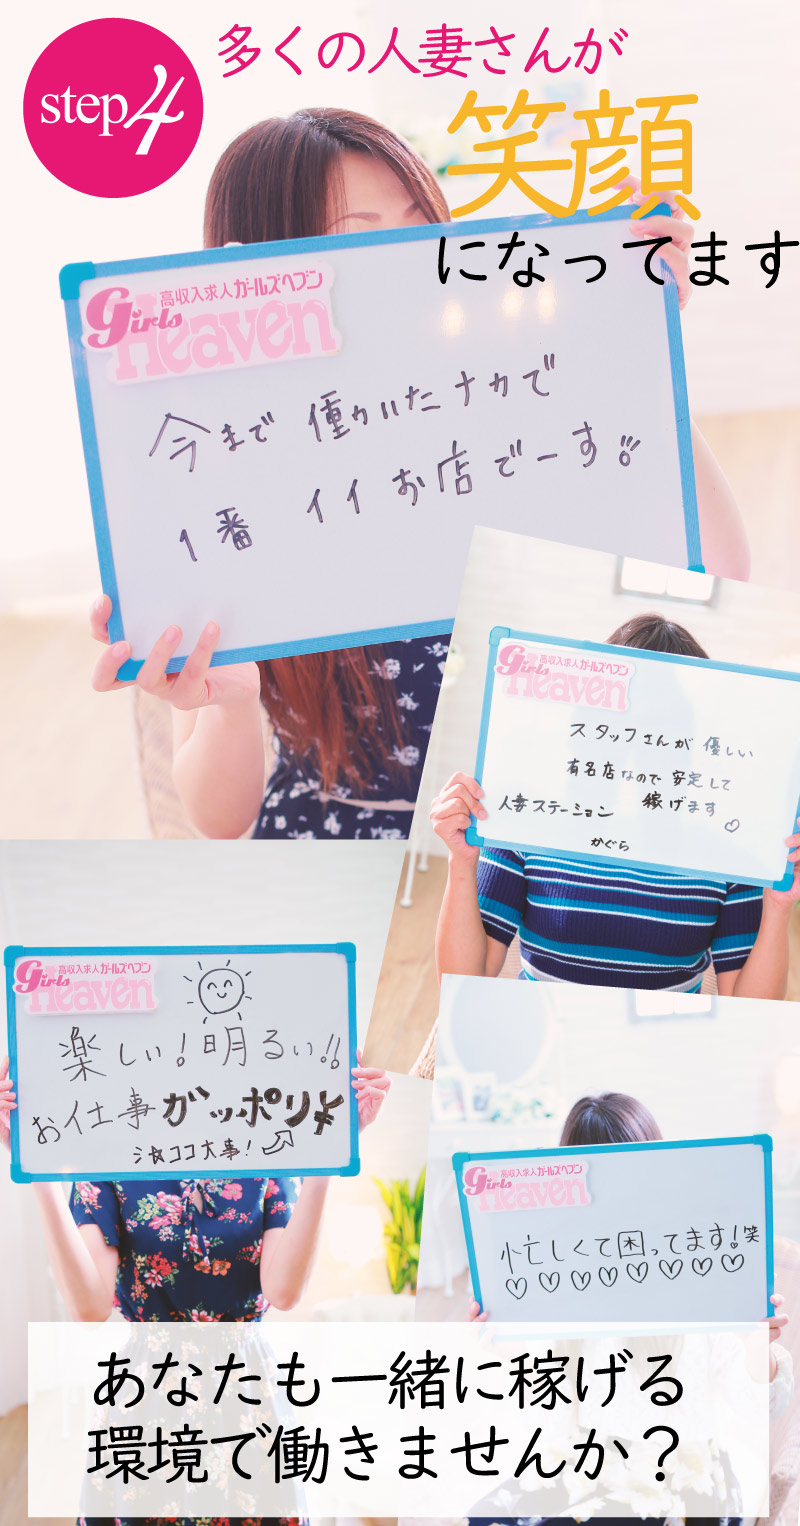 step4
多くの人妻さんが
笑顔
になってます
高収入求人ガールズヘブン
Girls
Heaven
今まで働いたナカで
1番 イイお店でーす!!
高収入求人ガールズヘブン
Girls
Heaven
スタッフさんが優しい
有名店なので安定して
稼げます♡
人妻ステーション
かぐら
高収入求人ガールズヘブン
Girls
Heaven
楽しい!明るい!!
お仕事ガッポリ¥
ココ大事!
高収入求人ガールズヘブン
Girls
Heaven
忙しくて困ってます!笑
♡♡♡♡♡♡♡♡
あなたも一緒に稼げる
環境で働きませんか？